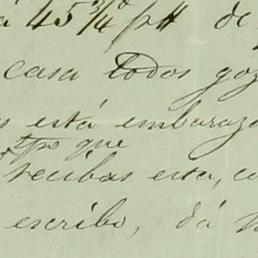 á 45 3/4 p# de
casa todos goz
s está embaraza
tpo que
recibas esta, co
escribo, dá